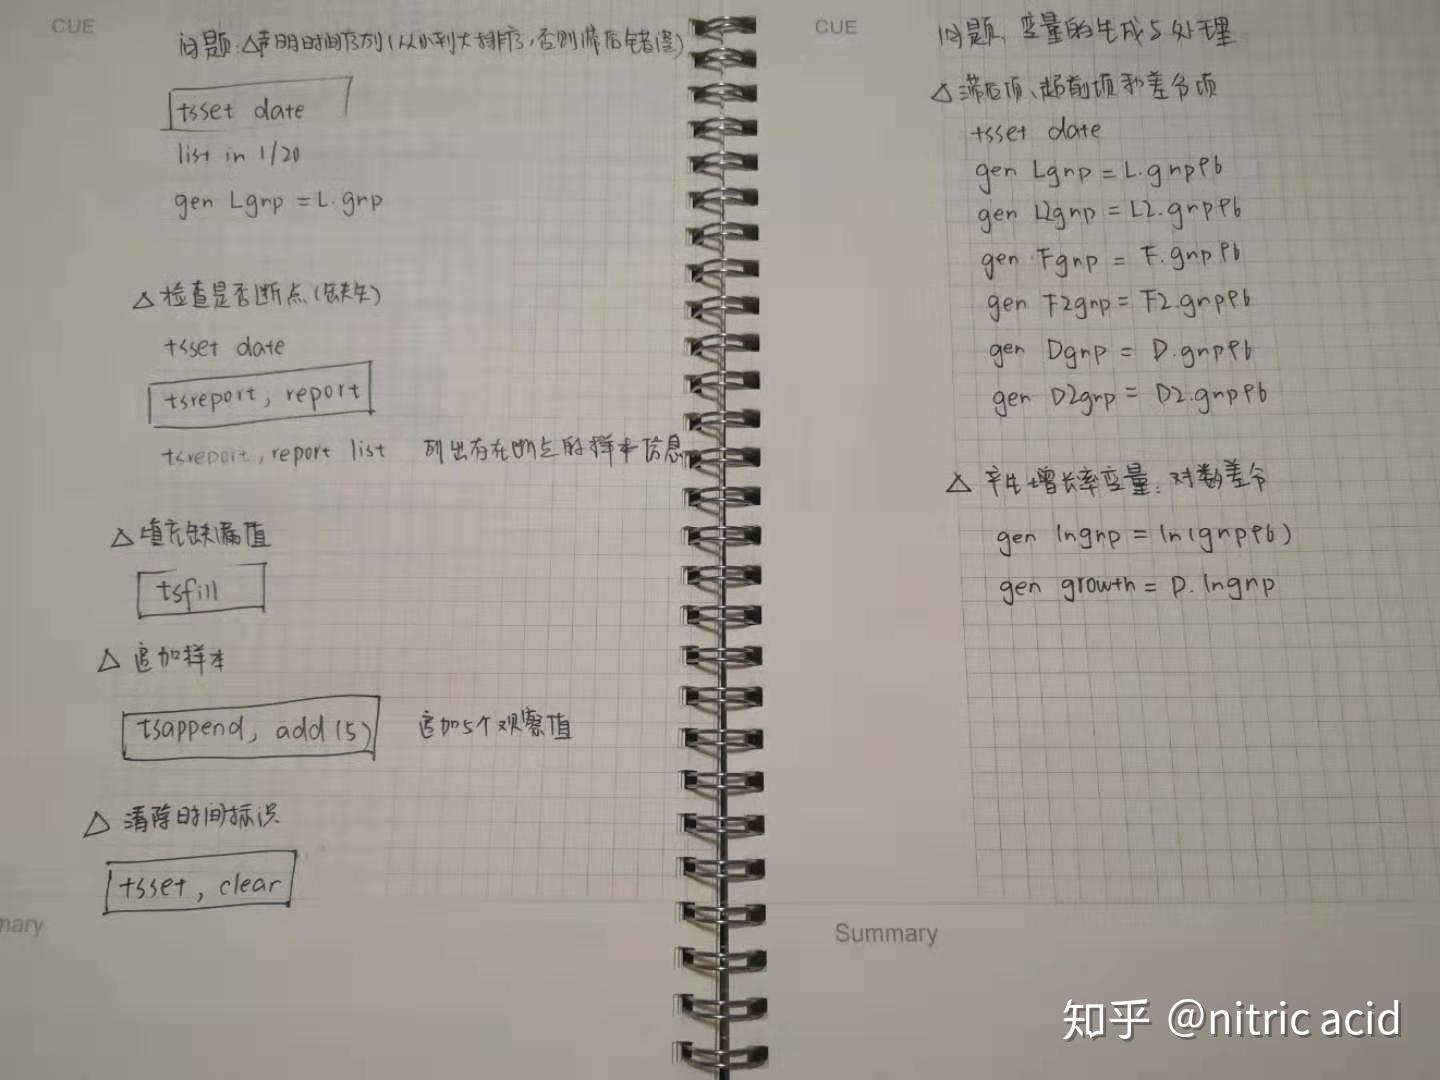 CUE
问题:△声明时间序列(从小到大排序,否则滞后错误)
tsset date
list in 1/20
gen Lgnp = L.gnp
△检查是否断点(缺失)
tsset date
tsreport, report
tsreport, report list 列出存在断点的样本信息
△填充缺漏值
tsfill
△追加样本
tsappend, add(5) 追加5个观察值
△清除时间标识
tsset, clear
mary
CUE
问题:变量的生成与处理
△滞后项、超前项和差分项
tsset date
gen Lgnp = L.gnp96
gen L2gnp = L2.gnp96
gen Fgnp = F.gnp96
gen F2gnp = F2.gnp96
gen Dgnp = D.gnp96
gen D2gnp = D2.gnp96
△产生增长率变量:对数差分
gen lngnp = ln(gnp96)
gen growth = D.lngnp
Summary
知乎 @nitric acid